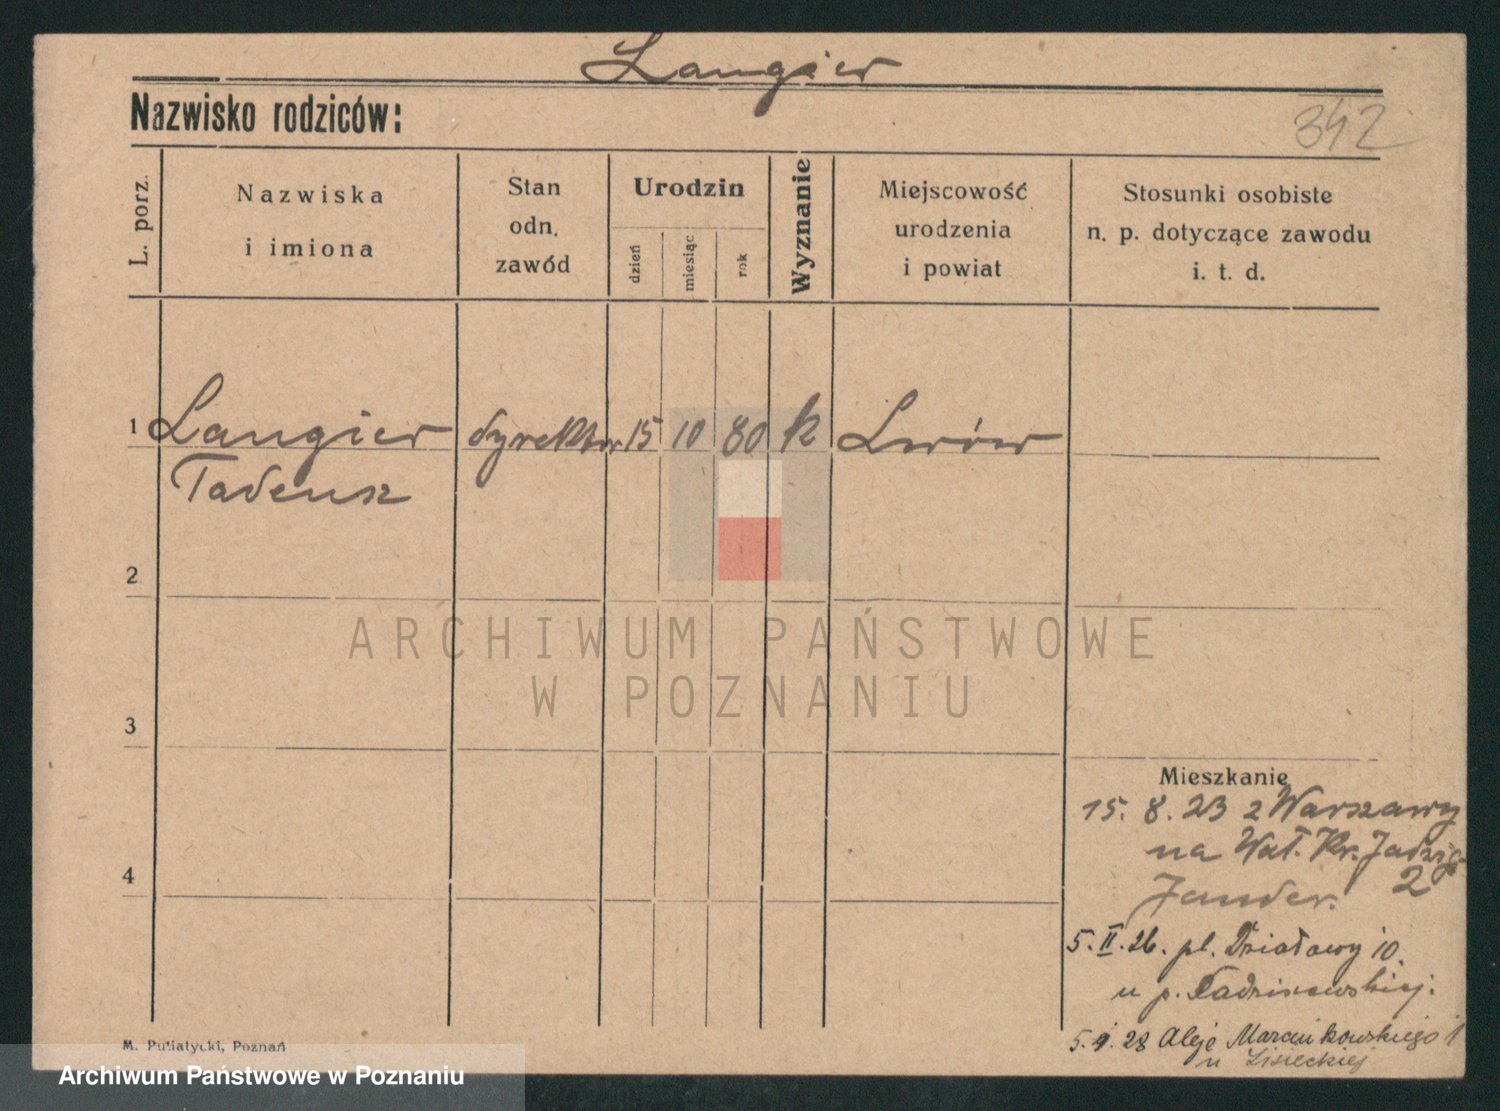 Langier
Nazwisko rodziców:
342
L. porz.
Nazwiska
i imiona
Stan
odn.
zawód
Urodzin
dzień
miesiąc
rok
Wyznanie
Miejscowość
urodzenia
i powiat
Stosunki osobiste
n. p. dotyczące zawodu
i. t. d.
1 Langier dyrektor 15 10 80 k Lwów
Tadeusz
2
ARCHIWUM PAŃSTWOWE
W POZNANIU
3
Mieszkanie
15. 8. 23 z Warszawy
na Wał. Kr. Jadwigi
2
4
Jander.
5. II. 26. pl. Działowy 10.
u p.
5. 28 Aleje Marcinkowskiego 1
u Lisieckiej
M. Putiatycki, Poznań
Archiwum Państwowe w Poznaniu